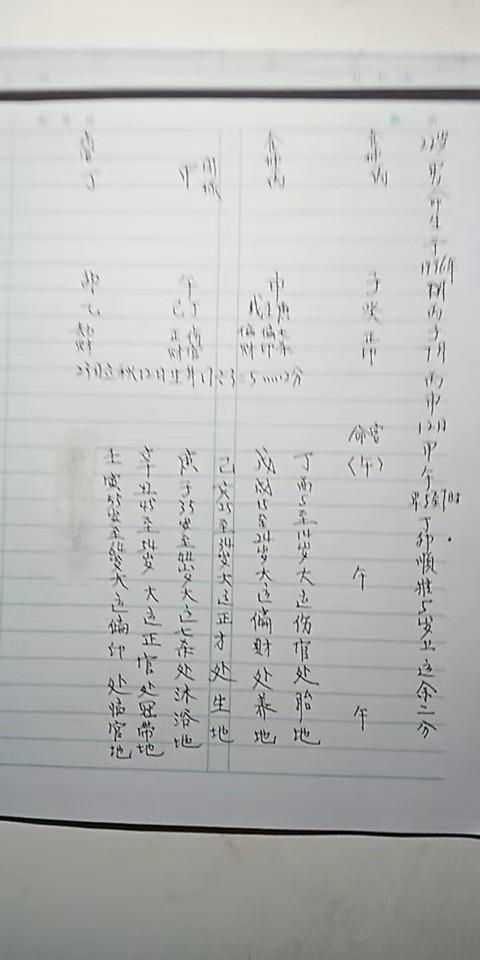 22岁男命生于1996年丙子7月丙申12日甲午早5至7时丁卯顺推5岁上运余二分
食神丙 子癸正印 命宫（午） 午 午
食神丙 申戊壬庚 偏财偏印七杀
甲 午己丁 正财伤官
伤官丁 卯乙劫财
丁酉5至14岁大运伤官处胎地
戊戌15至24岁大运偏财处养地
己亥25至34岁大运正才处生地
庚子35岁至44岁大运七杀处沐浴地
辛丑45至54岁大运正官处冠带地
壬寅55岁至64岁大运偏印处临官地